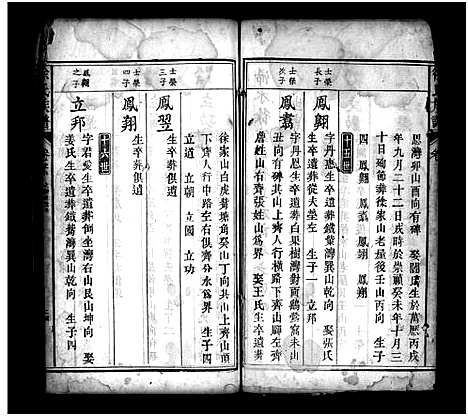 恩灣卯山酉向有碑 娶闕氏生於萬歷丙戌
年九月二十二日戌時於崇禎癸未年十月三
十日殉節葬徐家山老屋後壬山丙向 生子
四 鳳翱 鳳翥 鳳翊 鳳翔
十三世
士榮長子
鳳翱
字丹應生卒遺葬鐵葉灣巽山乾向 娶張氏
生卒葬從夫塋左 生子一 立邦
士榮次子
鳳翥
字丹恩生卒遺葬白果樹灣對面鷄窩未山
丑向有碑其山上齊人行橫路下齊山腳左齊
詹姓山右齊張姓山爲界 娶王氏生卒遺葬
徐家山白虎塘角癸山丁向其山上齊山頂
下齊人行中路左右俱齊分水爲界 生子四
立道 立朝 立國 立功
士榮三子
鳳翌
生卒葬俱遺
士榮四子
鳳翔
生卒葬俱遺
十四世
鳳翱之子
立邦
字君愛生卒遺葬倒坐灣右山艮山坤向 娶
姜氏生卒遺葬鐵灣巽山乾向 生子四